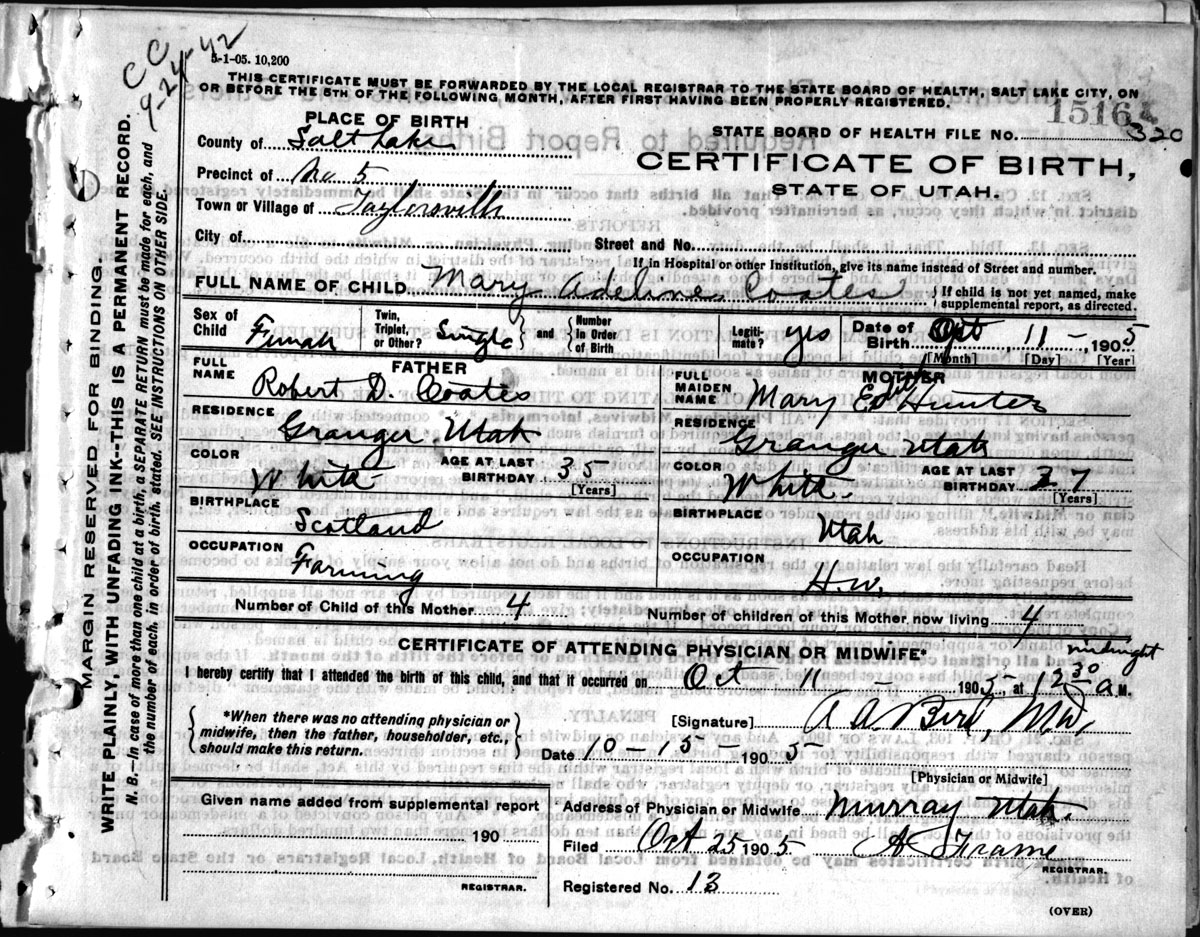 CC
9-24-42
5-1-05. 10,200
THIS CERTIFICATE MUST BE FORWARDED BY THE LOCAL REGISTRAR TO THE STATE BOARD OF HEALTH, SALT LAKE CITY, ON
OR BEFORE THE 5TH OF THE FOLLOWING MONTH, AFTER FIRST HAVING BEEN PROPERLY REGISTERED.
PLACE OF BIRTH
STATE BOARD OF HEALTH FILE NO. 320
County of Salt Lake
CERTIFICATE OF BIRTH,
Precinct of No 5
STATE OF UTAH.
Town or Village of Taylorsville
City of Street and No.
If in Hospital or other Institution, give its name instead of Street and number.
FULL NAME OF CHILD Mary Adeline Coates { If child is not yet named, make
supplemental report, as directed.
Sex of Child Female Twin, Triplet, or Other? Single { and { Number in Order of Birth Legiti-mate? yes Date of Birth Oct 11 - 1905
[Month] [Day] [Year]
FATHER MOTHER
FULL NAME Robert D. Coates FULL MAIDEN NAME Mary Edith Hunter
RESIDENCE Granger Utah RESIDENCE Granger Utah
COLOR White AGE AT LAST BIRTHDAY 35 COLOR White AGE AT LAST BIRTHDAY 27
[Years] [Years]
BIRTHPLACE Scotland BIRTHPLACE Utah
OCCUPATION Farming OCCUPATION H.W.
Number of Child of this Mother 4 Number of children of this Mother now living 4
CERTIFICATE OF ATTENDING PHYSICIAN OR MIDWIFE*
midnight
I hereby certify that I attended the birth of this child, and that it occurred on Oct 11 - 1905, at 12 30 a M.
{ *When there was no attending physician or
midwife, then the father, householder, etc.,
should make this return. }
[Signature] A A Bird, M.D.
Date 10 - 15 - 1905
[Physician or Midwife]
Given name added from supplemental report
Address of Physician or Midwife Murray Utah
190
Filed Oct 25 1905 A Frame
REGISTRAR. REGISTRAR.
Registered No. 13
(OVER)
MARGIN RESERVED FOR BINDING.
WRITE PLAINLY, WITH UNFADING INK--THIS IS A PERMANENT RECORD.
N. B.--In case of more than one child at a birth, a SEPARATE RETURN must be made for each, and
the number of each, in order of birth, stated. SEE INSTRUCTIONS ON OTHER SIDE.